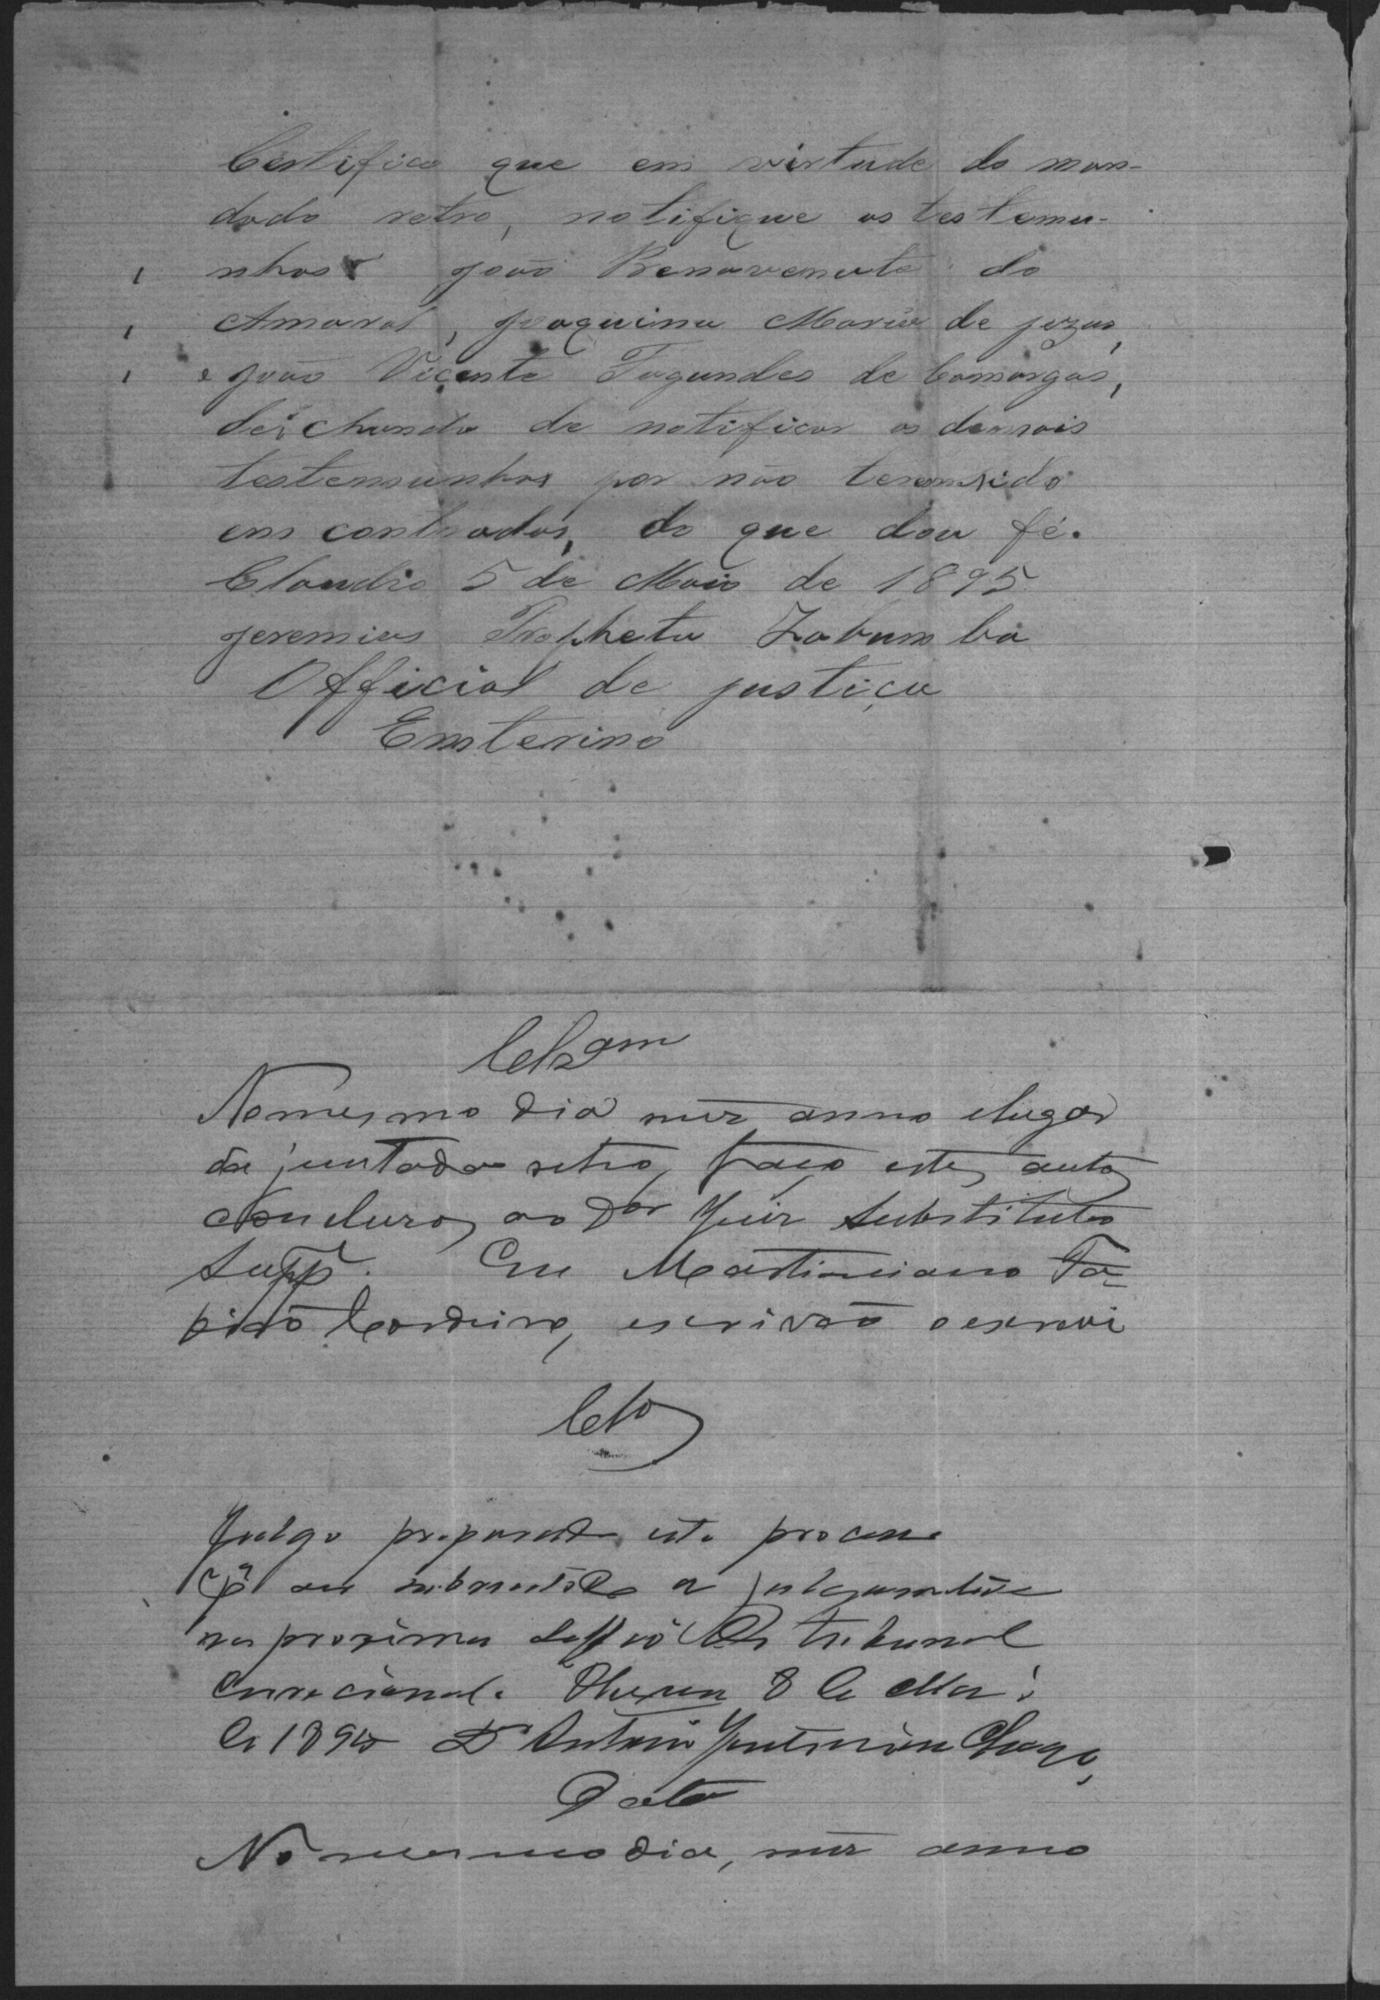 Certifico que em virtude do man-
dado retro, notifique as testemu-
nhas João Benavenute do
Amaral, Joaquina Maria de jezus,
e João Vicente Fagundes de Camargos,
deichando de notificar as demais
testemunhas por não terem sido
em contradas, do que dou fé.
Claudio 5 de Maio de 1895
Jeremias Propheta Zabumba
Official de justiça
Emterino
Clsam
No mesmo dia mez anno e lugar
da juntada retro, faço estes autos
conclusos ao Dor Juiz Substituto
Supp. Eu Martiniano Ta-
pirão Cordeiro, escrivão o escrevi
Clos
Julgo preparado este processo
para ser submettido a julgamento
na proxima sessão do tribunal
Correcional. 8 de Maio
de 1895 Dr Antonio
Data
No mesmo dia, mez anno